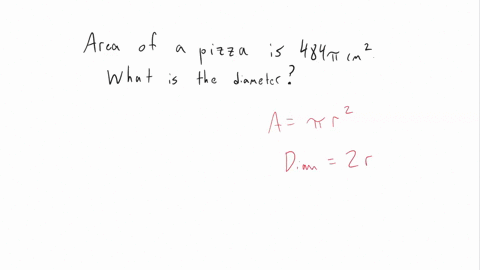 Area of a pizza is 484π cm².
What is the diameter?
A = πr²
Diam = 2r